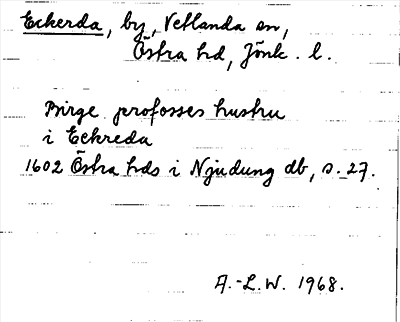 Eckerda, by, Vetlanda sn,
Östra hd, Jönk. l.
Birge profosses hustru
i Eckreda
1602 Östra hds i Njudung db, s. 27.
A.-L.W. 1968.